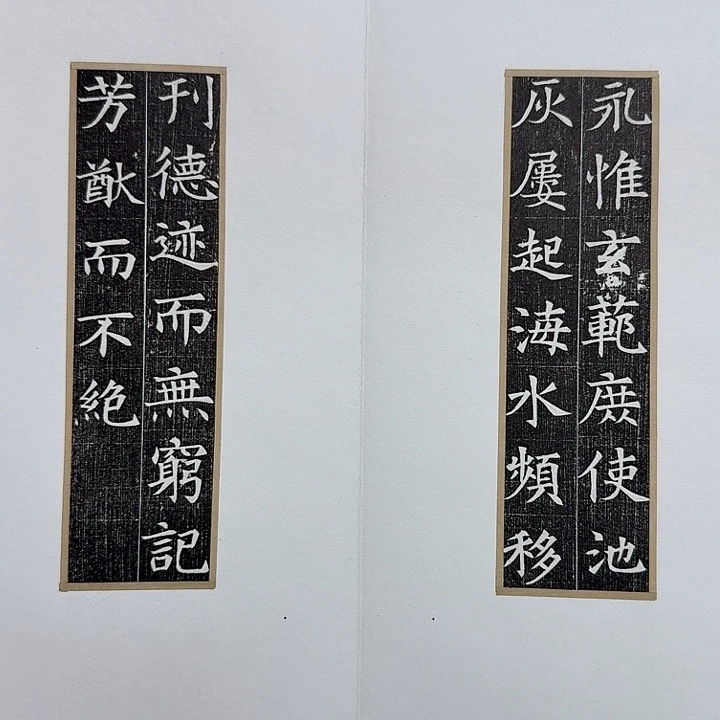 永惟玄範庻使池
灰屢起海水頻移
刊德迹而無窮記
芳猷而不絕